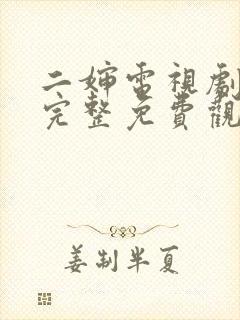 二嬸電視劇
完整免費觀
姜制半夏